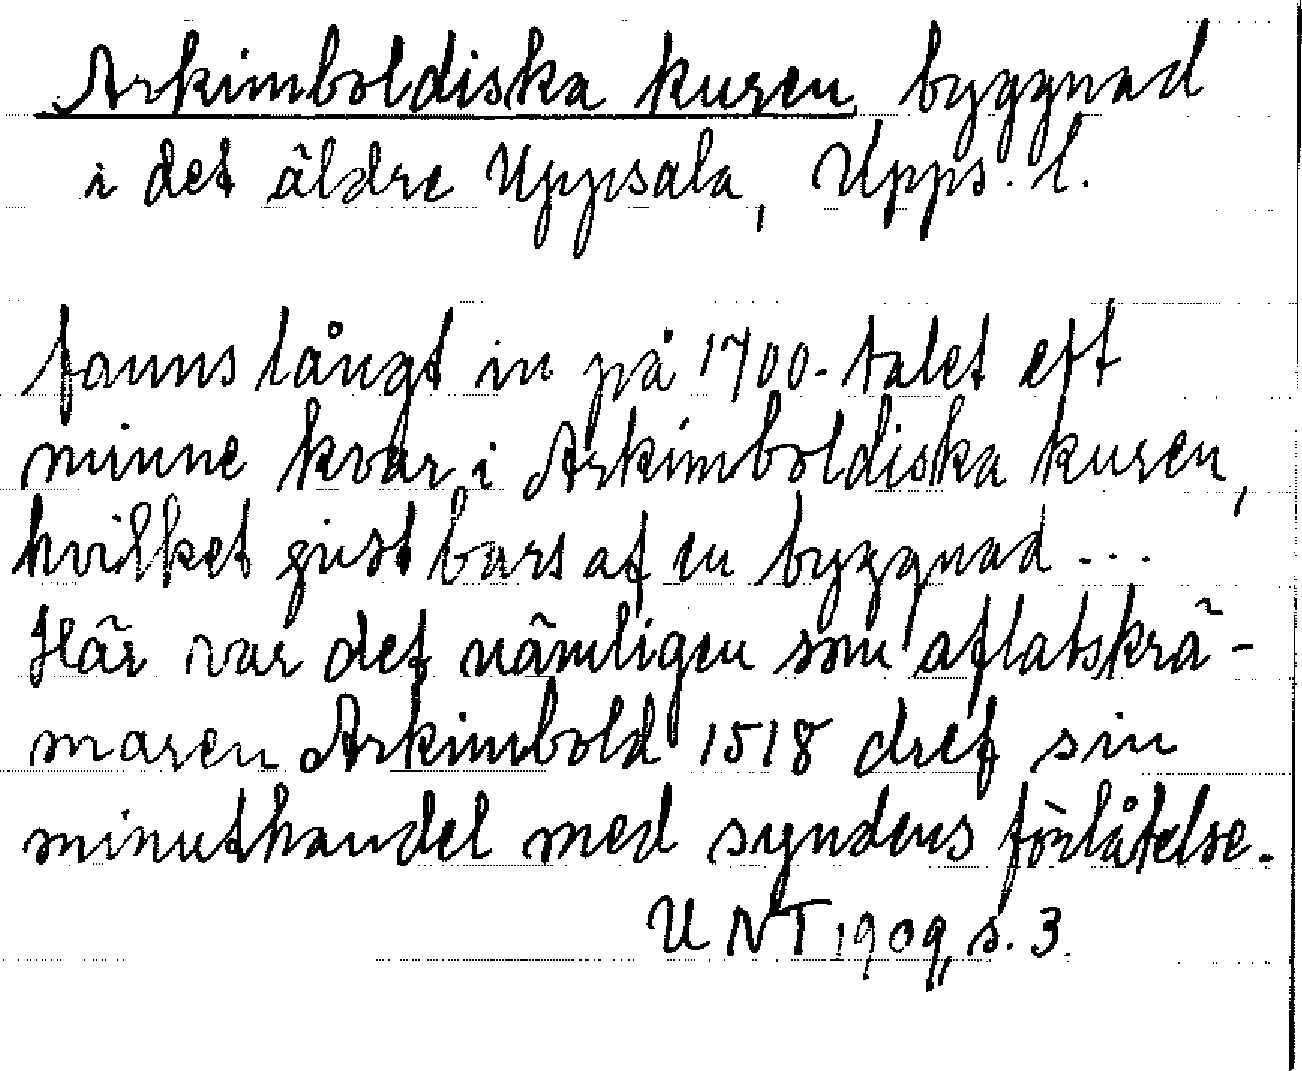 Arkimboldiska kuren byggnad
i det äldre Uppsala, Upps. l.
fanns långt in på 1700-talet ett
minne kvar i Arkimboldiska kuren,
hvilket gist bars af en byggnad ...
Här var det nämligen som aflatskrä-
maren Arkimbold 1518 dref sin
minuthandel med syndens förlåtelse.
UNT 1909, s. 3.